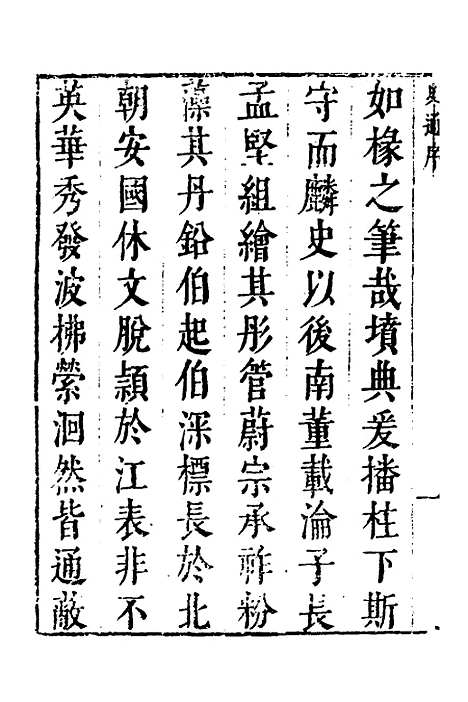 史通序
一
如椽之筆哉墳典爰播柱下斯
守而麟史以後南董載淪子長
孟堅組繪其彤管蔚宗承祚粉
藻其丹鉛伯起伯深標長於北
朝安國休文脫頴於江表非不
英華秀發波拂縈洄然皆通蔽